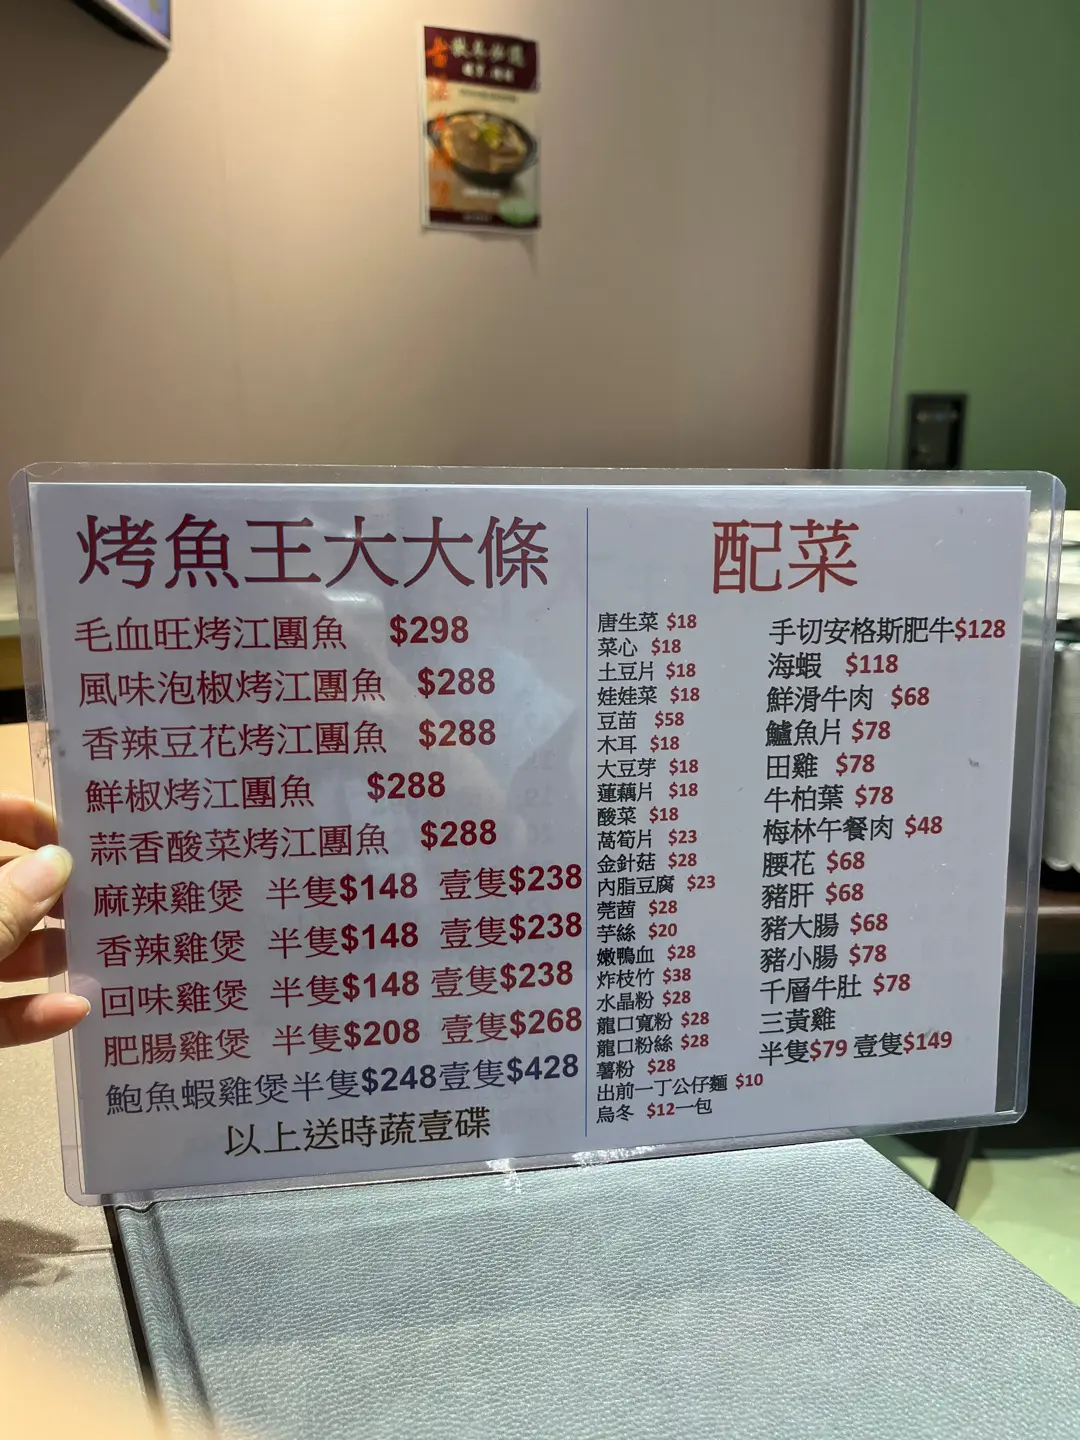 烤魚王大大條
毛血旺烤江團魚 $298
風味泡椒烤江團魚 $288
香辣豆花烤江團魚 $288
鮮椒烤江團魚 $288
蒜香酸菜烤江團魚 $288
麻辣雞煲 半隻$148 壹隻$238
香辣雞煲 半隻$148 壹隻$238
回味雞煲 半隻$148 壹隻$238
肥腸雞煲 半隻$208 壹隻$268
鮑魚蝦雞煲半隻$248壹隻$428
以上送時蔬壹碟
配菜
唐生菜 $18
菜心 $18
土豆片 $18
娃娃菜 $18
豆苗 $58
木耳 $18
大豆芽 $18
蓮藕片 $18
酸菜 $18
萵筍片 $23
金針菇 $28
內脂豆腐 $23
莞茜 $28
芋絲 $20
嫩鴨血 $28
炸枝竹 $38
水晶粉 $28
龍口寬粉 $28
龍口粉絲 $28
薯粉 $28
出前一丁公仔麵 $10
烏冬 $12一包
手切安格斯肥牛$128
海蝦 $118
鮮滑牛肉 $68
鱸魚片 $78
田雞 $78
牛柏葉 $78
梅林午餐肉 $48
腰花 $68
豬肝 $68
豬大腸 $68
豬小腸 $78
千層牛肚 $78
三黃雞
半隻$79 壹隻$149